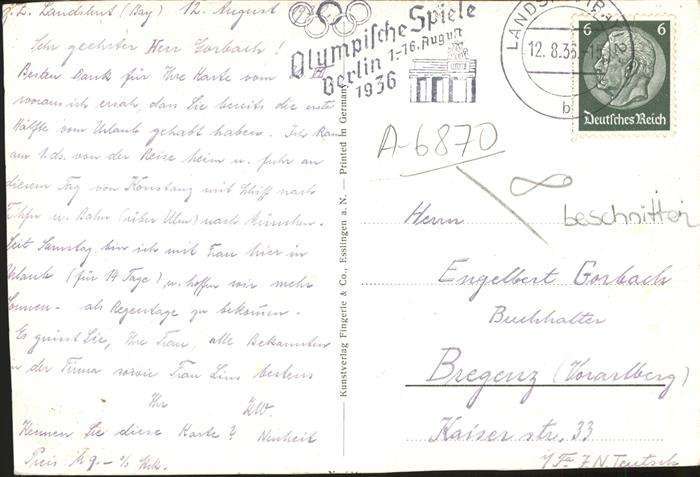 z. Z. Landshut (Bay) 12. August
Sehr geehrter Herr Gorbach!
Besten Dank für Ihre Karte vom
woraus ich ersah, dass Sie bereits die erste
Hälfte vom Urlaub gehabt haben. Ich kam
am 1. ds. von der Reise heim u. fuhr an
diesem Tag von Konstanz mit Schiff nach
u. Bahn (über Ulm) nach München.
Seit Samstag bin ich mit Frau hier in
Urlaub (für 14 Tage) u. hoffen wir mehr
Sonnen- als Regentage zu bekommen.
Es grüsst Sie, Ihre Frau, alle Bekannten
in der Firma sowie Frau bestens
Ihr
Kennen Sie diese Karte? Neuheit
Preis
Olympische Spiele
Berlin 1.-16. August
1936
LANDSHUT
12. 8. 35
b
6 6
Deutsches Reich
A-6870
beschnitten
Kunstverlag Fingerle & Co., Esslingen a. N. — Printed in Germany
Herrn
Engelbert Gorbach
Buchhalter
Bregenz (Vorarlberg)
Kaiser str. 33